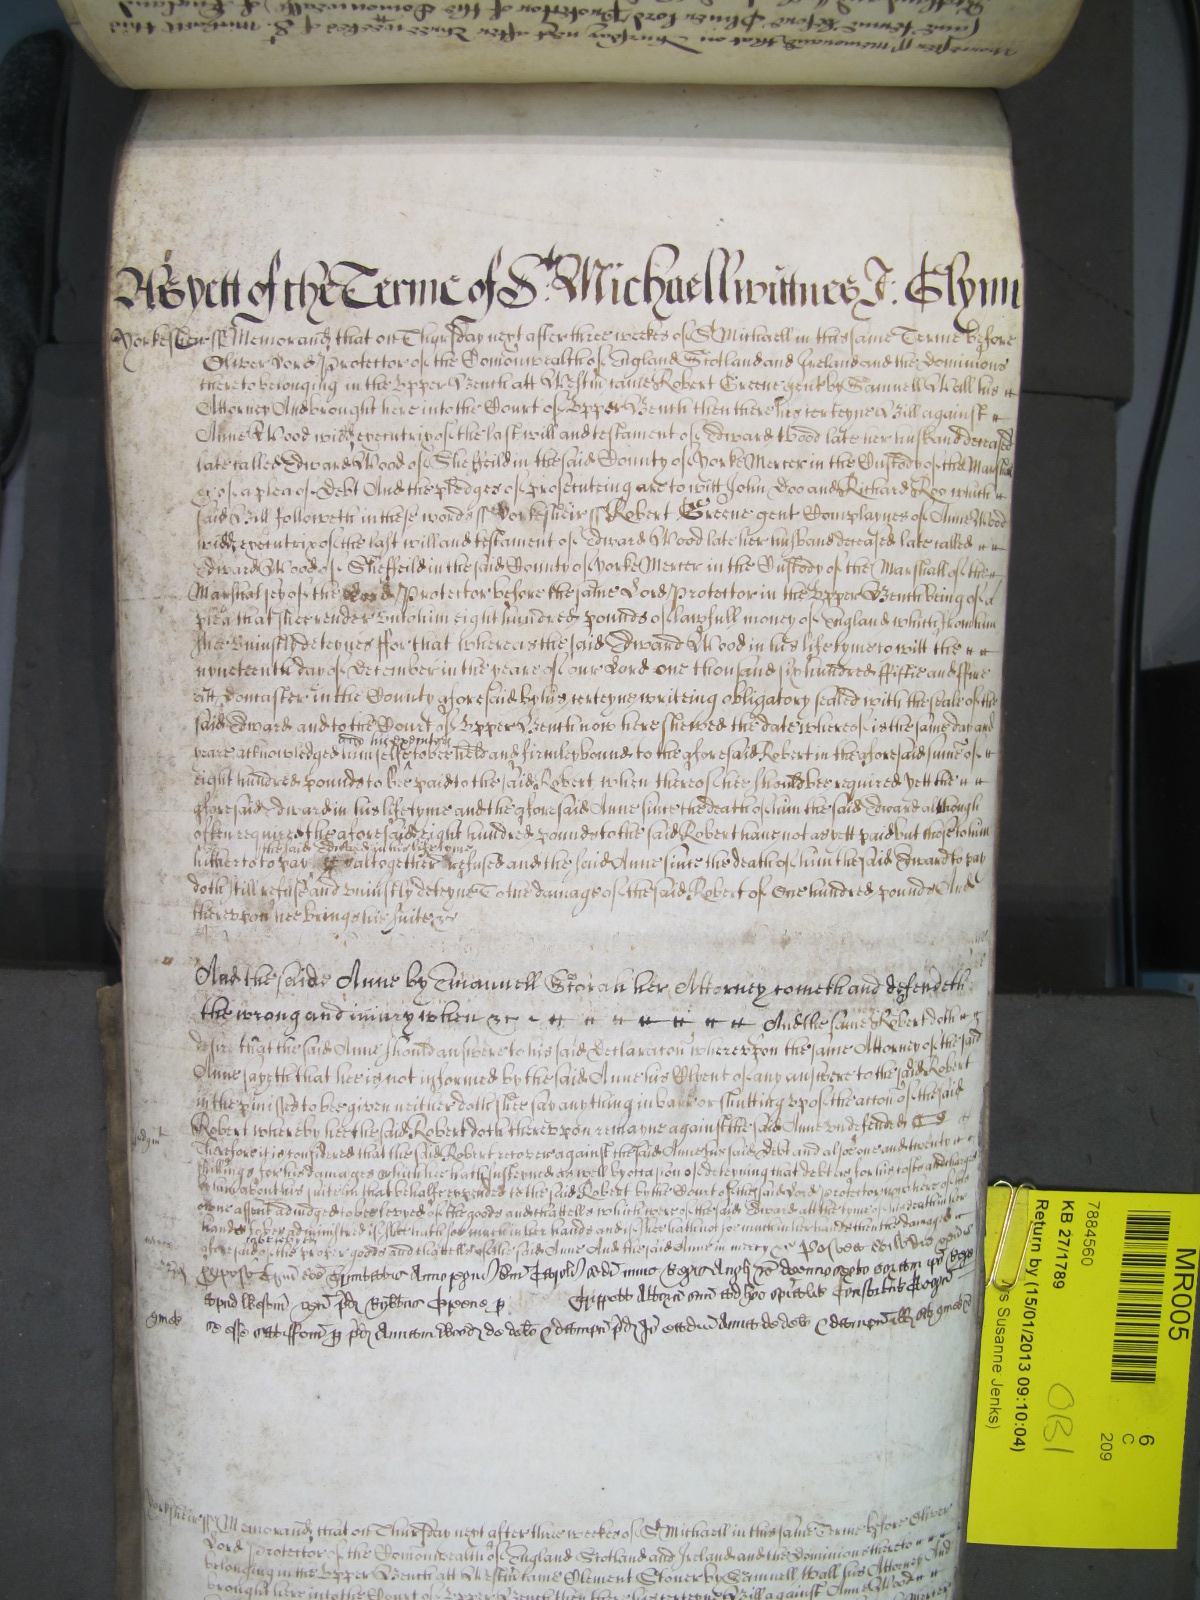 As yett of the Terme of St. Michaell wittnes J: Glynn
Yorkesheir ss Memorand that on Thursday next after three weekes of St Michaell in this same Terme before
Oliver Lord Protector of the Comonwealth of England Scotland and Ireland and the dominions
thereto belonging in the Upper Bench att Westm came Robert Greene gent by Samuell Wall his
Attorney And brought here into the Court of Upper Bench then there his certeyne Bill against
Anne Wood widd executrix of the last will and testament of Edward Wood late her husband deceased
late called Edward Wood of Sheffeild in the said County of Yorke Mercer in the Custody of the Marshall
&c of a plea of Debt And the pledges of prosecuteing are to witt John Doo and Richard Roo which
said Bill followeth in these words ss Yorkesheir ss Robert Greene gent Complaynes of Anne Wood
widd executrix of the last will and testament of Edward Wood late her husband deceased late called
Edward Wood of Sheffeild in the said County of Yorke Mercer in the Custody of the Marshall of the
Marshalsey of the Lord Protector before the same Lord Protector in the Upper Bench being of a
plea that shee render unto him eight hundred pounds of lawfull money of England which from him
shee uniustly deteynes ffor that whereas the said Edward Wood in his life tyme to witt the
nyneteenth day of December in the yeare of our Lord one thousand six hundred ffiftie and ffive
att Doncaster in the County aforesaid by his certeyne writeing obligatory sealed with the seale of the
said Edward and to the Court of Upper Bench now here shewed the date whereof is the same day and
yeare acknowledged himselfe and his executors to bee held and firmley bound to the aforesaid Robert in the aforesaid sume of
eight hundred pounds to bee paid to the said Robert when thereof hee should bee required yett the
aforesaid Edward in his life tyme and the aforesaid Anne since the death of him the said Edward although
often required the aforesaid eight hundred pounds to the said Robert have not as yett paid but those to him
hitherto to pay the said Edward in his life tyme altogether refused and the said Anne since the death of him the said Edward to pay
doth still refuse and uniustly deteyne To the damage of the said Robert of One hundred pounds And
thereupon hee brings his suite &c
And the saide Anne by Emanuell Storah her Attorney cometh and defendeth
the wrong and iniury when &c And the same Robert doth
desire that the said Anne should answere to his said Declaracon whereupon the same Attorney of the said
Anne sayeth that hee is not informed by the said Anne his Clyent of any answere to the said Robert
in the pmisses to bee given neither doth shee say anything in barr or shutting up of the accon of the said
Robert whereby hee the said Robert doth thereupon remayne against the said Anne undefended &c
Judgmt
Therefore it is considered that the said Robert recover against the said Anne his said Debt and also one and twenty
shillings for his damages which hee hath susteyned as well by occasion of deteyning that debt as for his costs and charges
by him about his suite in that behalfe expended to the said Robert by the Court of the said Lord Protector now here of his
owne assent adiudged to bee levyed of the goods and chattells which were of the said Edward att the tyme of his death in her
hands to bee administred if shee hath soe much in her hands and if shee hath not soe much in her hands then the damages
aforesaid to bee levyed of the proper goods and chattells of the said Anne And the said Anne in mercy &c
Yorkesheir ss Memorand that on Thursday next after three weekes of St Michaell in this same Terme before Oliver
Lord Protector of the Comonwealth of England Scotland and Ireland and the dominions thereto
belonging in the Upper Bench att Westm came Clement Stoner by Samuell Wall his Attorney And
brought here into the Court of Upper Bench then there his certeyne Bill against Anne Wood
MR005
6
C
209
7884560
KB 27/1789
Return by (15/01/2013 09:10:04)
s Susanne Jenks)
OB1